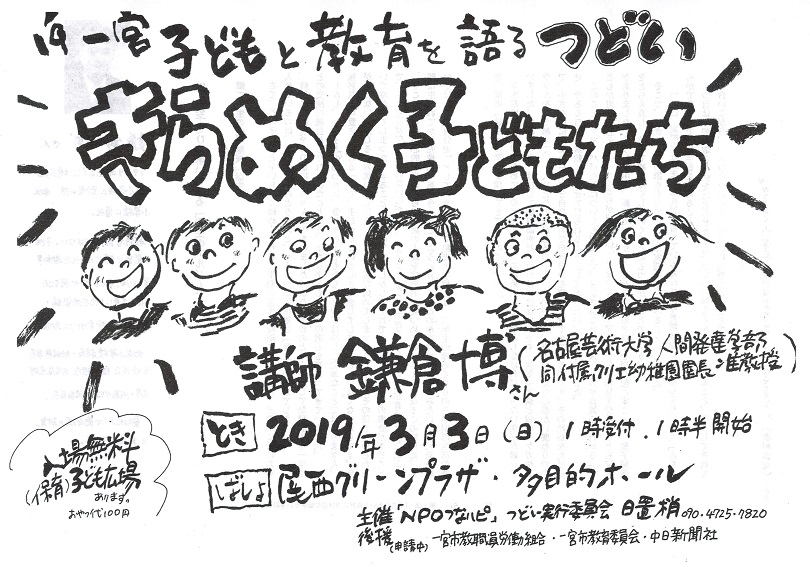 一宮子どもと教育を語るつどい
きらめく子どもたち
講師 鎌倉博さん
(名古屋芸術大学 人間発達学部准教授
同付属クリエ幼稚園園長)
入場無料
(保育)子ども広場
あります。
おやつ代100円
とき 2019年3月3日(日) 1時受付.1時半開始
ばしょ 尾西グリーンプラザ・多目的ホール
主催「NPOつなハピ」つどい実行委員会 日置梢 090-4725-7820
後援(申請中) 一宮市教職員労働組合・一宮市教育委員会・中日新聞社